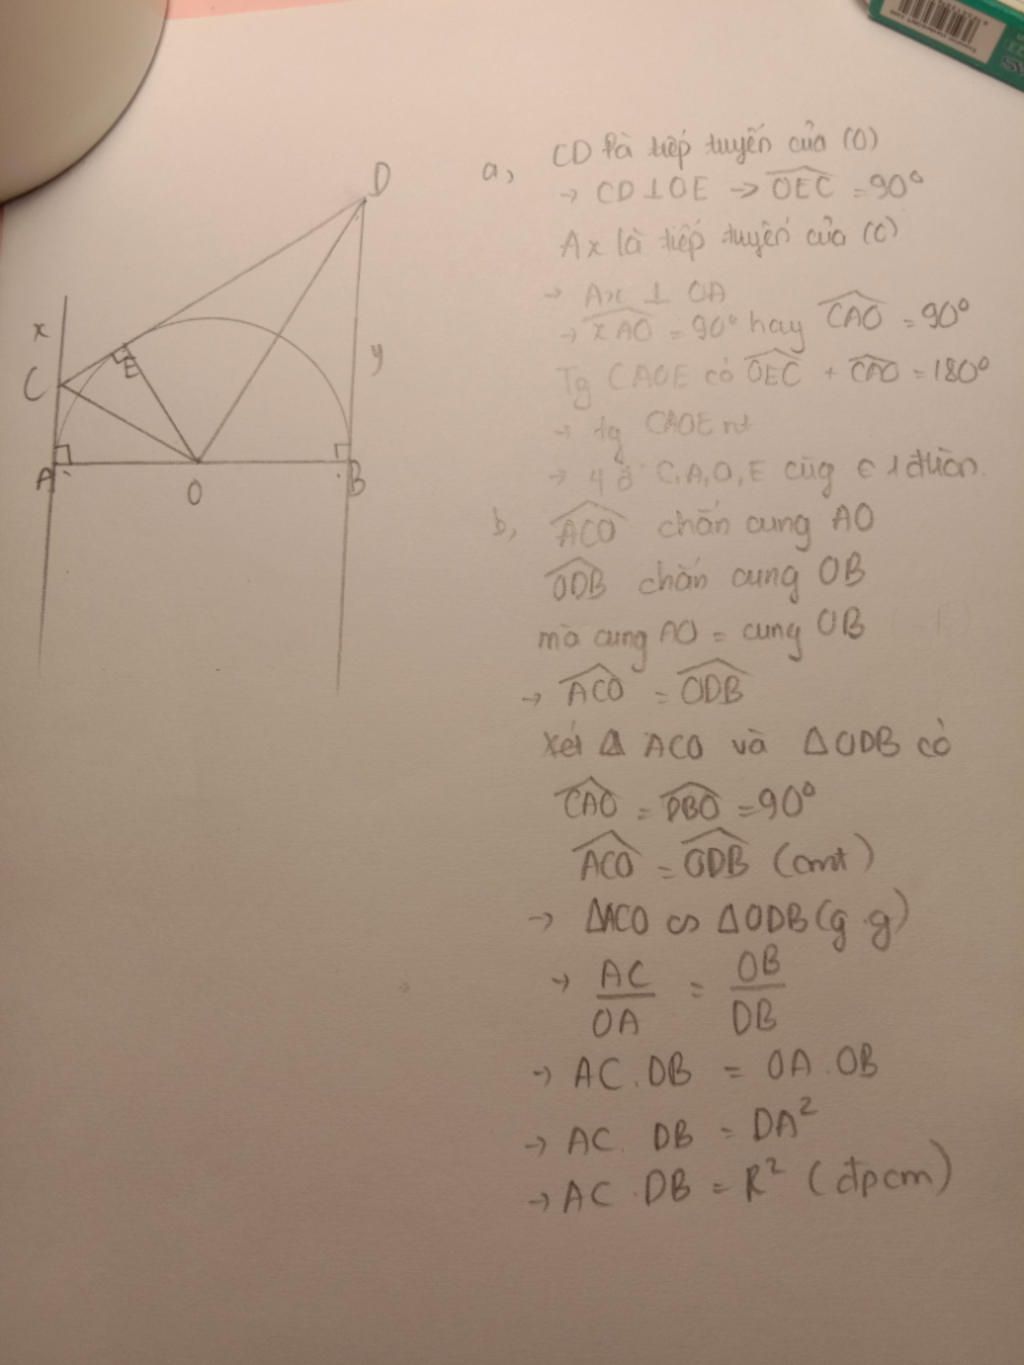 D
x
C
E
y
A
O
B
a, CD là tiếp tuyến của (O)
→ CD ⊥ OE → \widehat{OEC} = 90°
Ax là tiếp tuyến của (O)
→ Ax ⊥ OA
→ \widehat{xAO} = 90° hay \widehat{CAO} = 90°
Tg CAOE có \widehat{OEC} + \widehat{CAO} = 180°
→ tg CAOE nt
→ 4 đ C, A, O, E cùg ∈ 1 đtròn.
b, \widehat{ACO} chắn cung AO
\widehat{ODB} chắn cung OB
mà cung AO = cung OB
→ \widehat{ACO} = \widehat{ODB}
xét Δ ACO và Δ ODB có
\widehat{CAO} = \widehat{DBO} = 90°
\widehat{ACO} = \widehat{ODB} (cmt)
→ ΔACO ∽ ΔODB (g.g)
→ AC/OA = OB/DB
→ AC . DB = OA . OB
→ AC . DB = OA²
→ AC . DB = R² (đpcm)